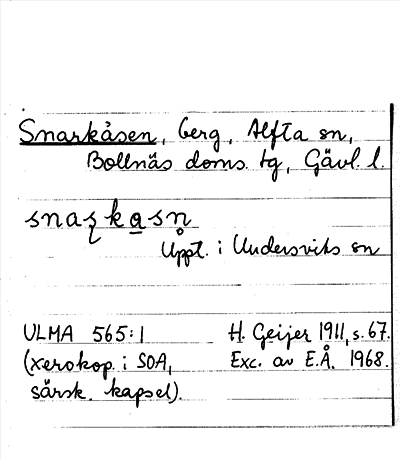 Snarkåsen, berg, Alfta sn,
Bollnäs doms. tg, Gävl. l.
snaʂkasn̥
Uppt. i Undersviks sn
ULMA 565:1 H. Geijer 1911, s. 67.
(xerokop. i SOA, Exc. av E.Å. 1968.
särsk. kapsel).